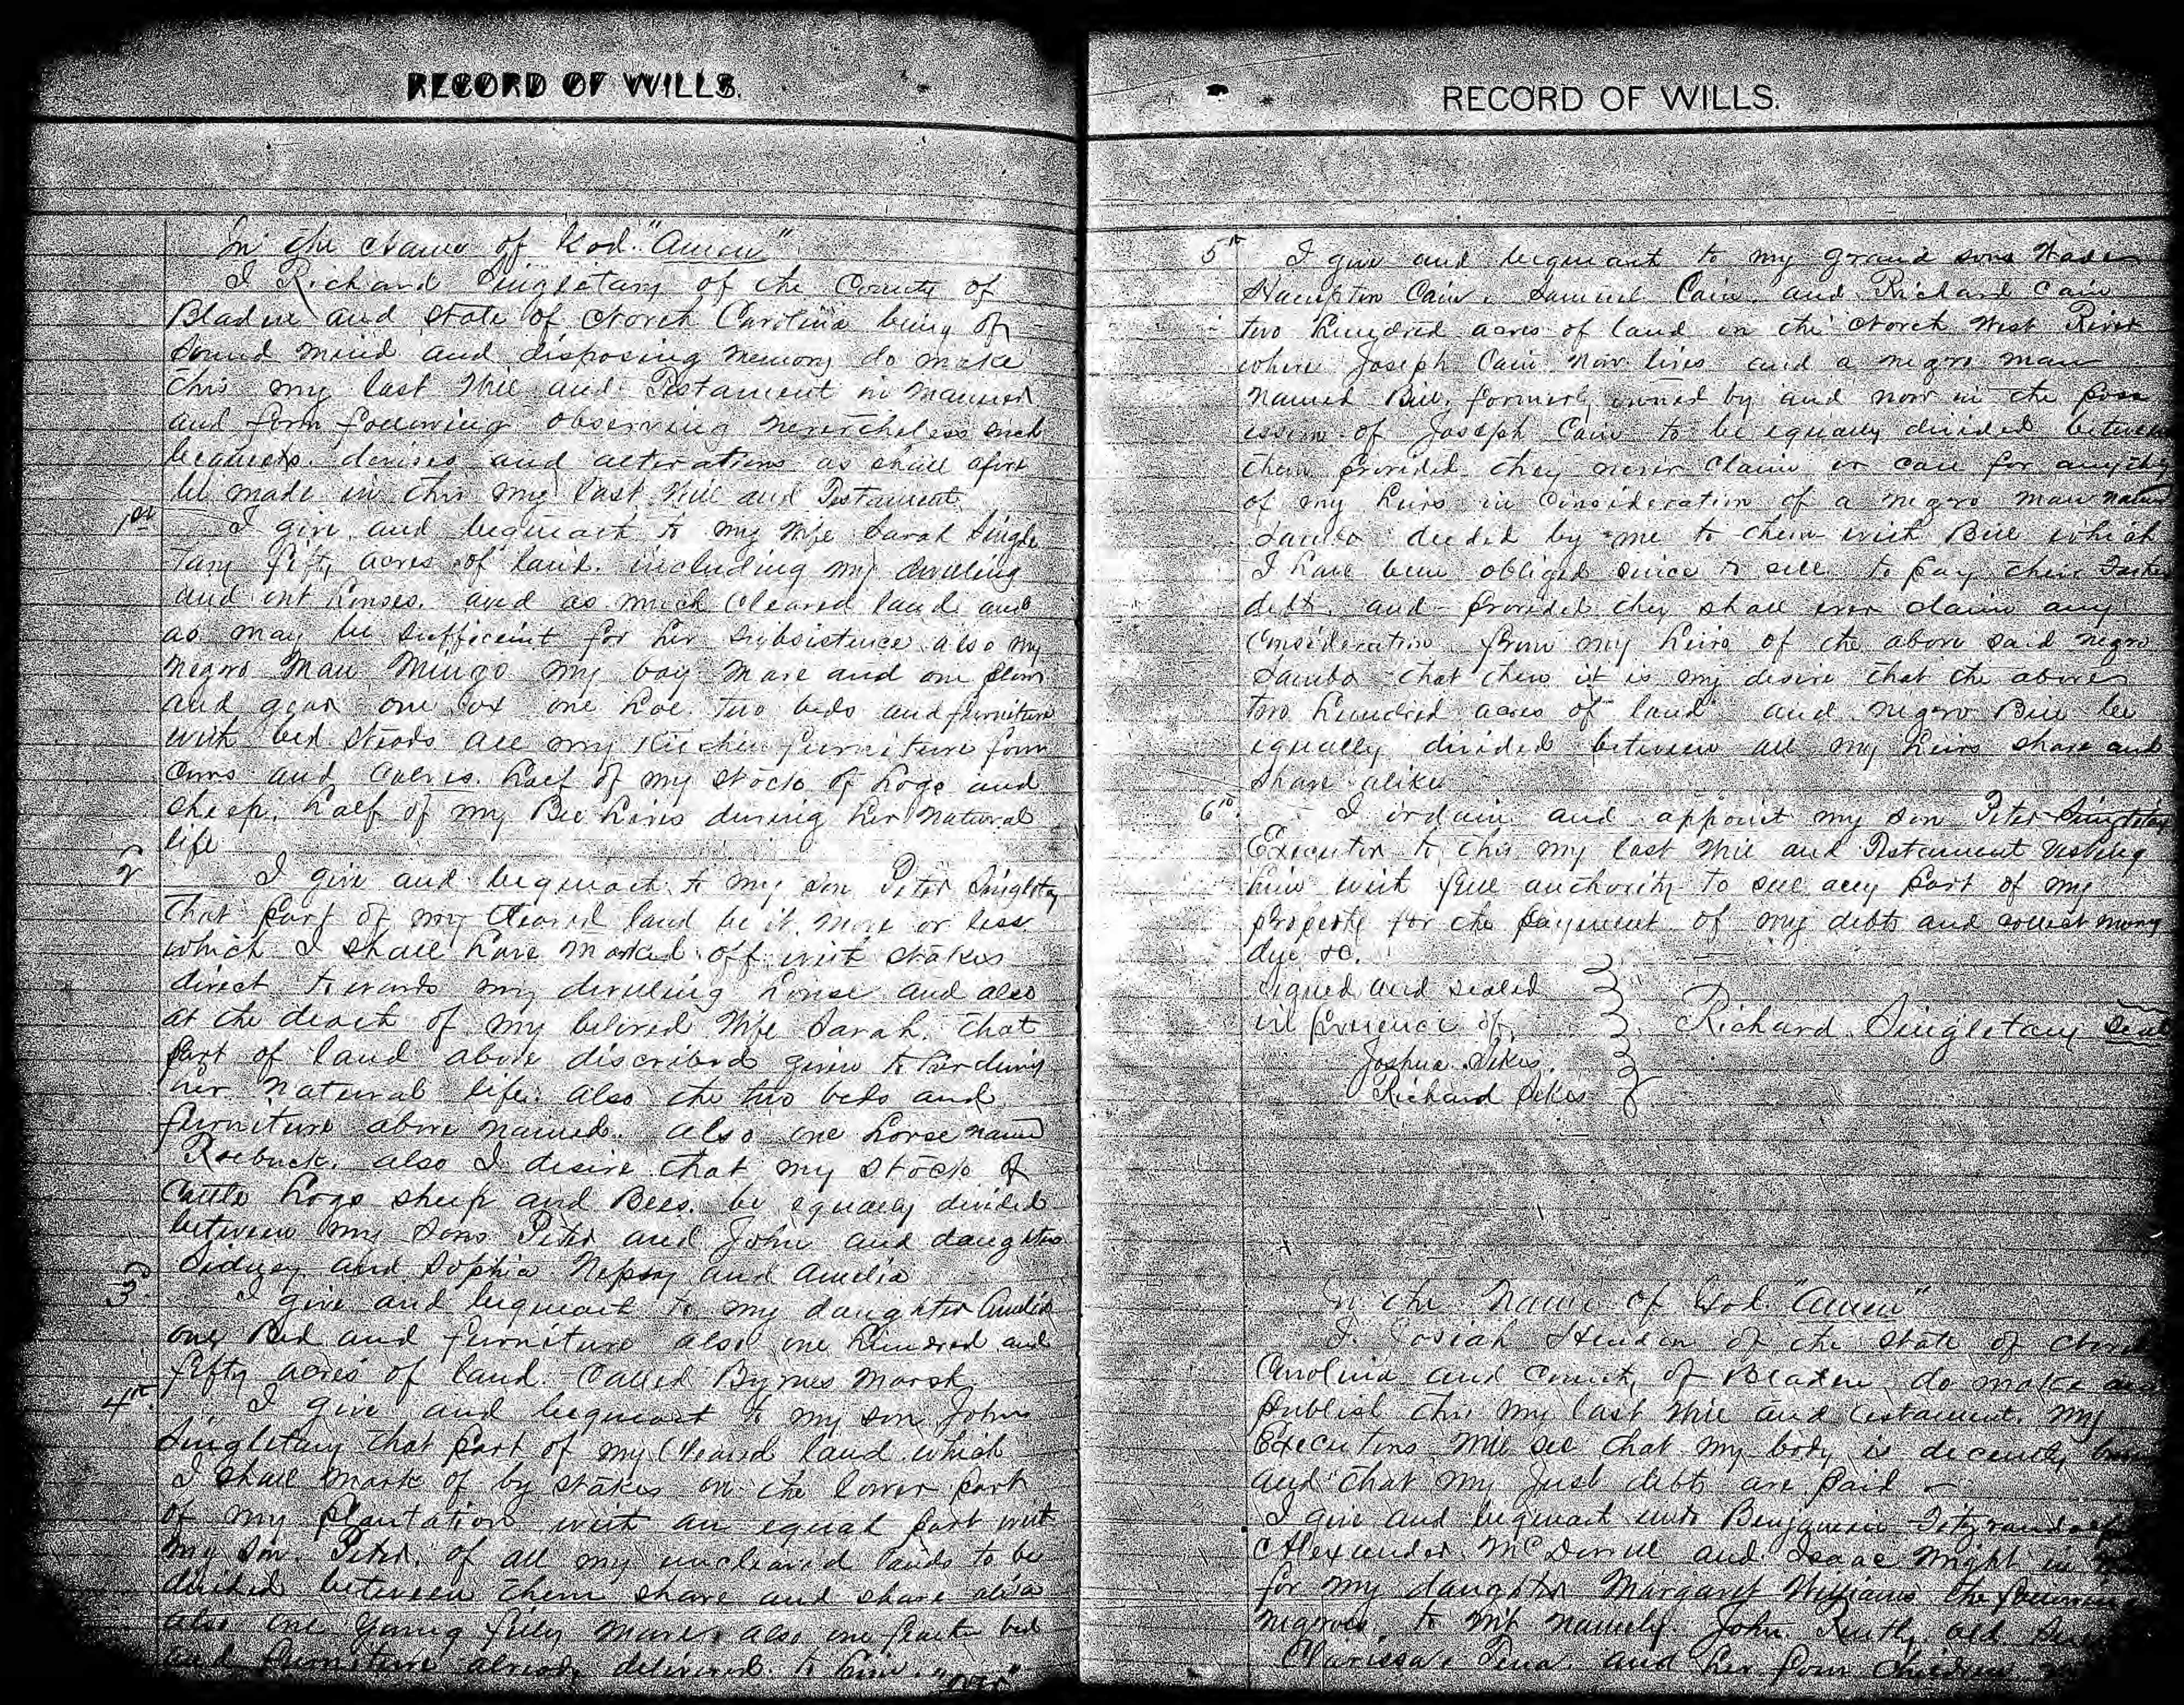 RECORD OF WILLS.
In the Name of God "Amen"
I Richard Singletary of the County of
Bladen and State of North Carolina being of
Sound mind and disposing memory do make
this my last Will and Testament in manner
and form following observing nevertheless such
bequests. devises and alterations as shall
be made in this my last Will and Testament.
1st I give and bequeath to my Wife Sarah Single
tary fifty acres of land. including my dwelling
and out houses. and as much cleared land
as may be sufficient for her subsistence also my
negro Man Mingo my bay mare and one plow
and gear one ox one hoe. two beds and furniture
with bed steads all my Kitchen furniture four
Cows and Calves. half of my stock of hogs and
sheep. half of my Bee hives during her natural
life
2 I give and bequeath to my son Peter Singletary
that part of my Cleared land be it more or less
which I shall have marked off with stakes
direct towards my dwelling house and also
at the death of my beloved Wife Sarah. that
part of land above discribed given to her during
her natural life. also the two beds and
furniture above named. also one horse named
Roebuck. also I desire that my stock of
Cattle hogs sheep and Bees. be equally divided
between my sons Peter and John and daughters
Sidney and Sophia Nepsey and Amelia
3 I give and bequeath to my daughter Amelia
one Bed and furniture also one hundred and
fifty acres of land. Called Byrnes Marsh.
4th I give and bequeath to my son John
Singletary that part of my Cleared land which
I shall mark of by stakes on the lower part
of my plantation with an equal part with
my son. Peter. of all my uncleared lands to be
divided between them share and share alike
also one young filly mare. also one bed
and furniture already delivered to him. "over"
RECORD OF WILLS.
5th I give and bequeath to my grand sons Wade
Hampton Cain. Samuel Cain. and Richard Cain
two hundred acres of land on the North West River
where Joseph Cain now lives and a negro man
named Bill. formerly owned by and now in the poss
ession of Joseph Cain to be equally divided between
them provided they never claim or call for anything
of my heirs in Consideration of a negro man named
Sambo deeded by me to them with Bill which
I have been obliged since to sell to pay their
debt. and provided they shall ever claim any
Consideration from my heirs of the above said negro
Sambo that then it is my desire that the above
two hundred acres of land and negro Bill be
equally divided between all my heirs share and
share alike
6th. I ordain and appoint my son Peter Singletary
Executor to this my last Will and Testament Vesting
him with full authority to sell any part of my
property for the payment of my debts and collect money
due &c.
Signed and sealed
in presence of Richard Singletary Seal
Joshua Sikes.
Richard Sikes
In the Name of God "Amen"
I. Josiah Hendon of the State of North
Carolina and County of Bladen do make and
publish this my last Will and testament. My
Executors will see that my body is decently
and that my Just debts are paid
I give and bequeath unto Benjamin Fitzrandolph
Alexander McDowell and Isaac Wright in
for my daughter Margaret Williams the following
negroes. to wit namely John. old
Clarissa. Tena. and her four children